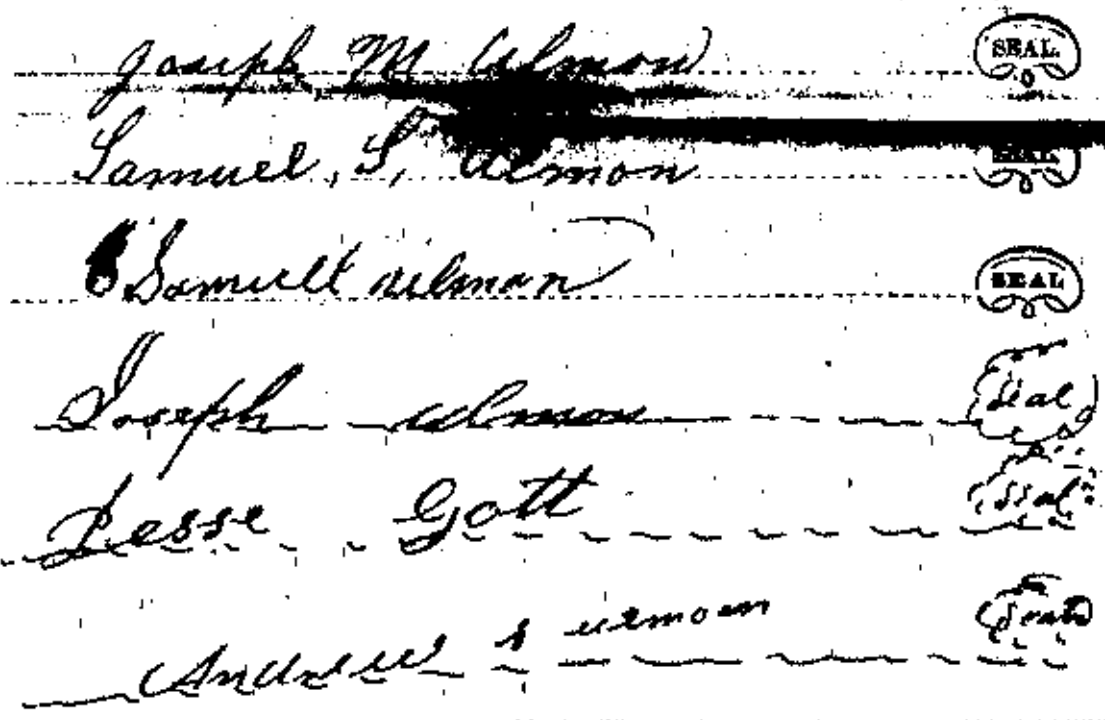 Joseph M Ulmon SEAL
Samuel, S, Ulmon SEAL
Samuell Ulman SEAL
Joseph Ulmon Seal
Jesse Gott Seal
Andrew S Ulmon Seal